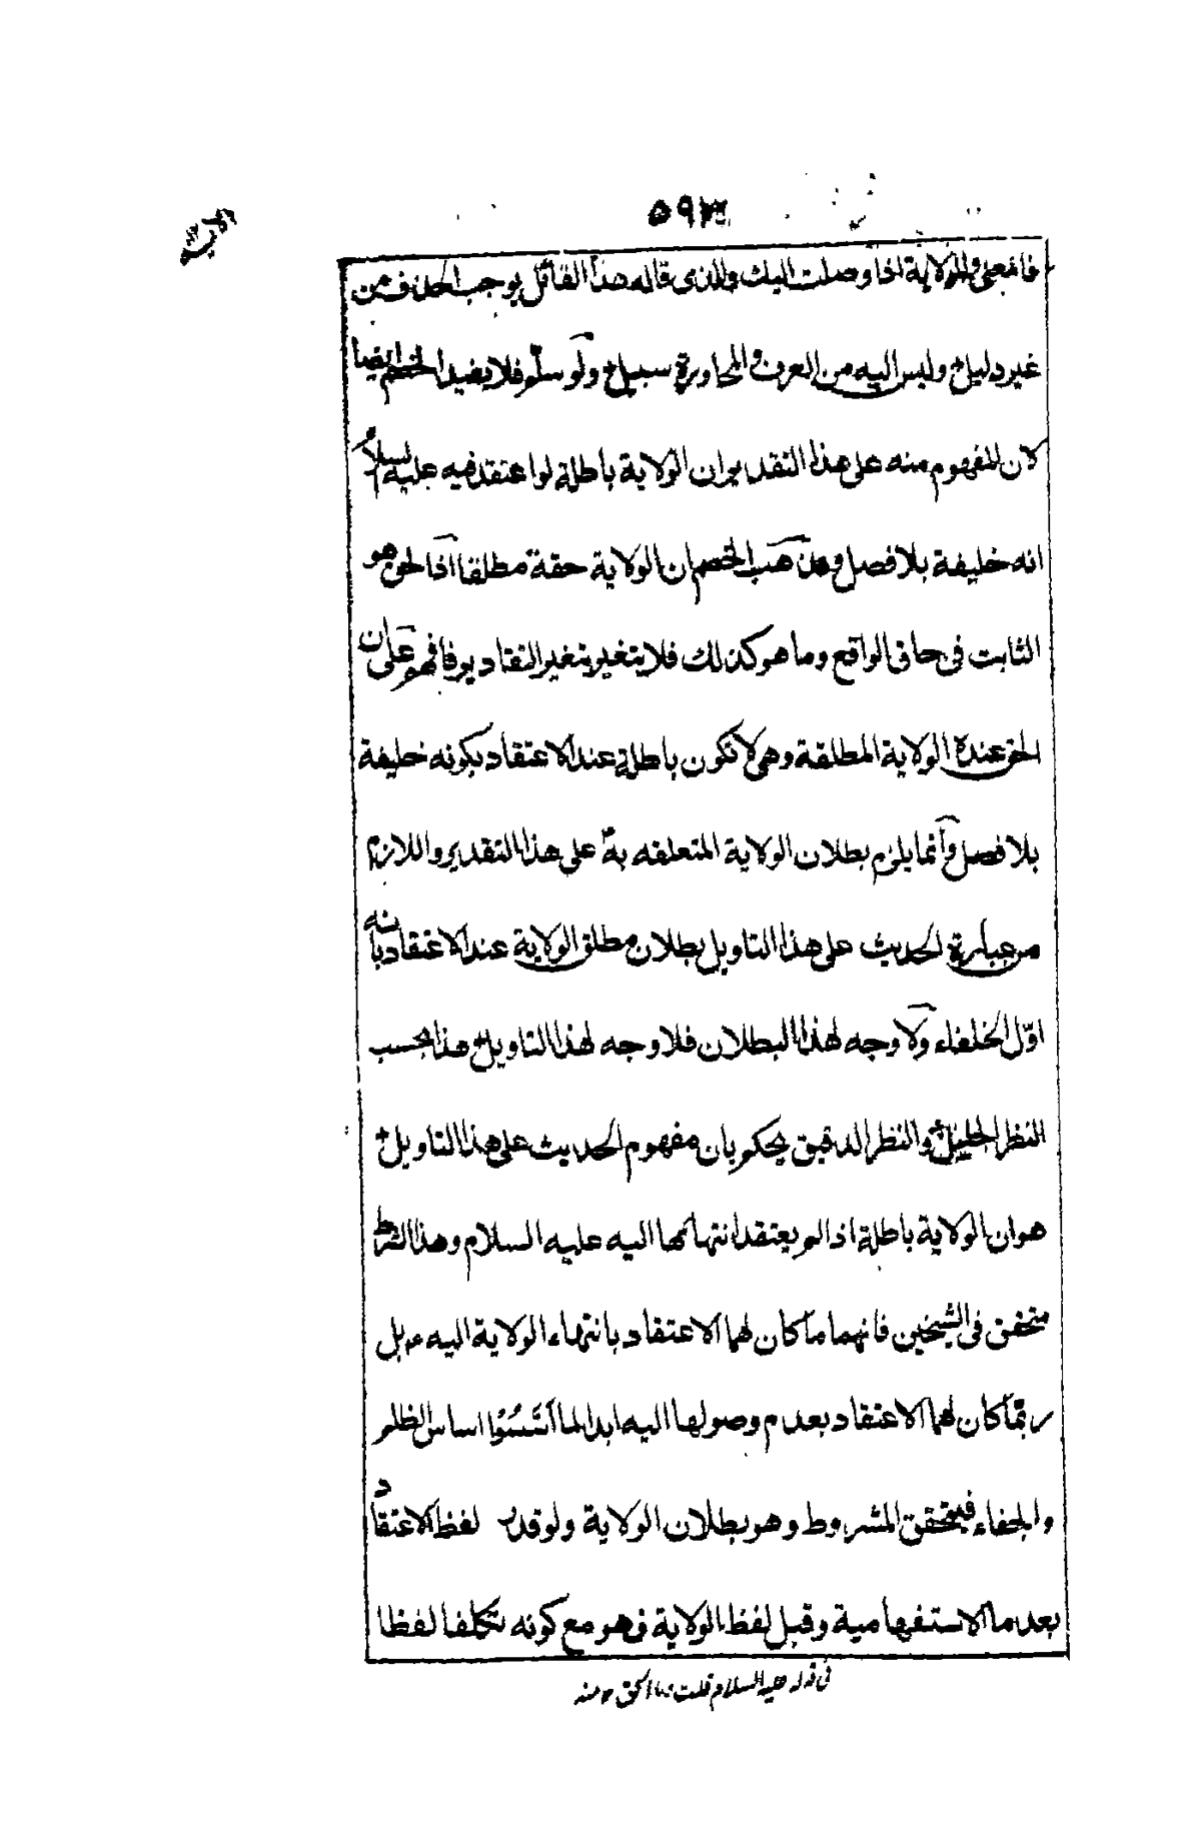 ٥٩٣
فالمعنى والولاية اذا وصلت اليك والذى قاله هذا القائل يوجب الحذف من
غير دليل وليس اليه من العرف والمحاورة سبيل ولو سلم فلا يفيد الخصم ايضا
لان المفهوم منه على هذا التقدير ان الولاية باطلة لو اعتقد فيه عليه السلام
انه خليفة بلا فصل ومذهب الخصم ان الولاية حقة مطلقا اذ الحق هو
الثابت فى حاق الواقع وما هو كذلك فلا يتغير بتغير التقادير فافهم على ان
الحق عنده الولاية المطلقة وهى لا تكون باطلة عند الاعتقاد بكونه خليفة
بلا فصل وانما يلزم بطلان الولاية المتعلقه به على هذا التقدير واللازم
من عبارة الحديث على هذا التاويل بطلان مطلق الولاية عند الاعتقاد بانه
اوّل الخلفاء ولا وجه لهذا البطلان فلا وجه لهذا التاويل هذا بحسب
النظر الجليل والنظر الدقيق يحكم بان مفهوم الحديث على هذا التاويل
هو ان الولاية باطلة اذا لم يعتقد انتهائها اليه عليه السلام وهذا الشرط
متحقق فى الشيخين فانهما ما كان لهما الاعتقاد بانتهاء الولاية اليه ع بل
ربّما كان لهما الاعتقاد بعدم وصولها اليه ابدا لما اَسَّسُوْا اساس الظلم
والجفاء فيتحقق المشروط وهو بطلان الولاية ولو قدر لفظ الاعتقاد
بعد ما الاستفهامية وقبل لفظ الولاية فهو مع كونه تكلفا لفظا
فى قوله عليه السلام قلت ما الحق ١٢ منه